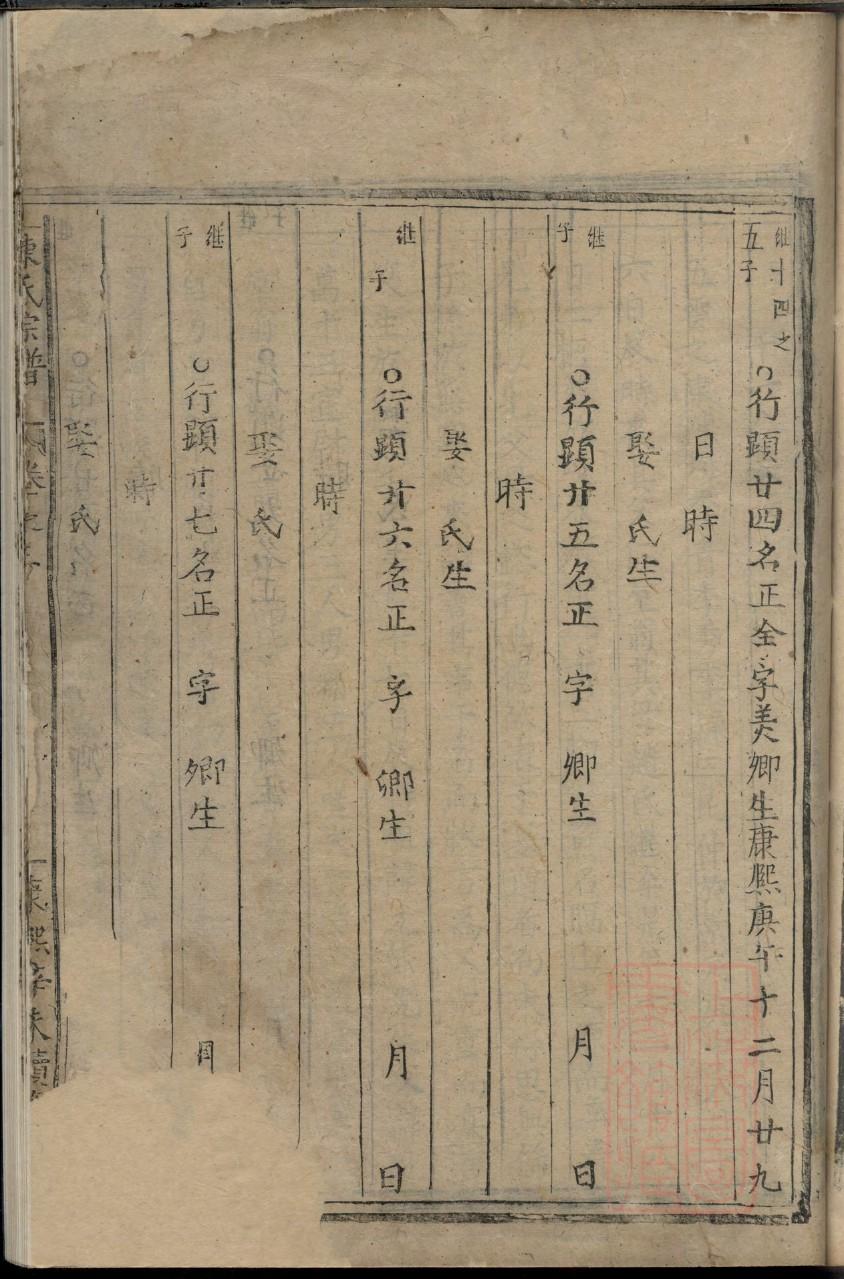 継十四之
五子
○行顕廿四名正全字美卿生康熙庚午十二月廿九
日時
娶 氏生
継
子
○行顕廿五名正 字 卿生 月 日
時
娶 氏生
継
子
○行顕廿六名正 字 卿生 月 日
時
娶 氏
継
子
○行顕廿七名正 字 卿生 月
時
娶 氏
陳氏宗譜 康熙辛未續